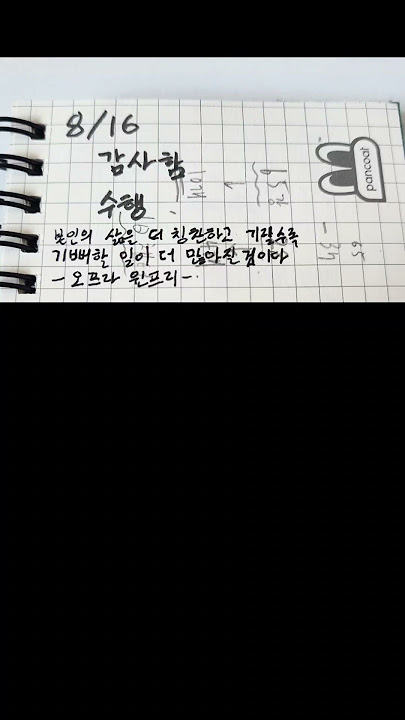 8/16
감사함
수행
본인의 삶을 더 칭찬하고 기릴수록
기뻐할 일이 더 많아질 것이다
- 오프라 윈프리 -
pancoat